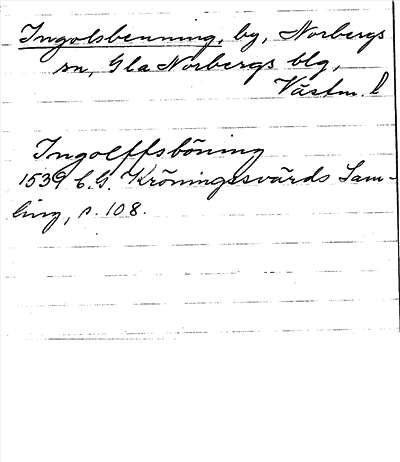 Ingolsbenning, by, Norbergs
sn, Gla Norbergs blg,
Västm. l
Ingolffsböning
1539 C.G. Kröningssvärds Sam-
ling, s. 108.